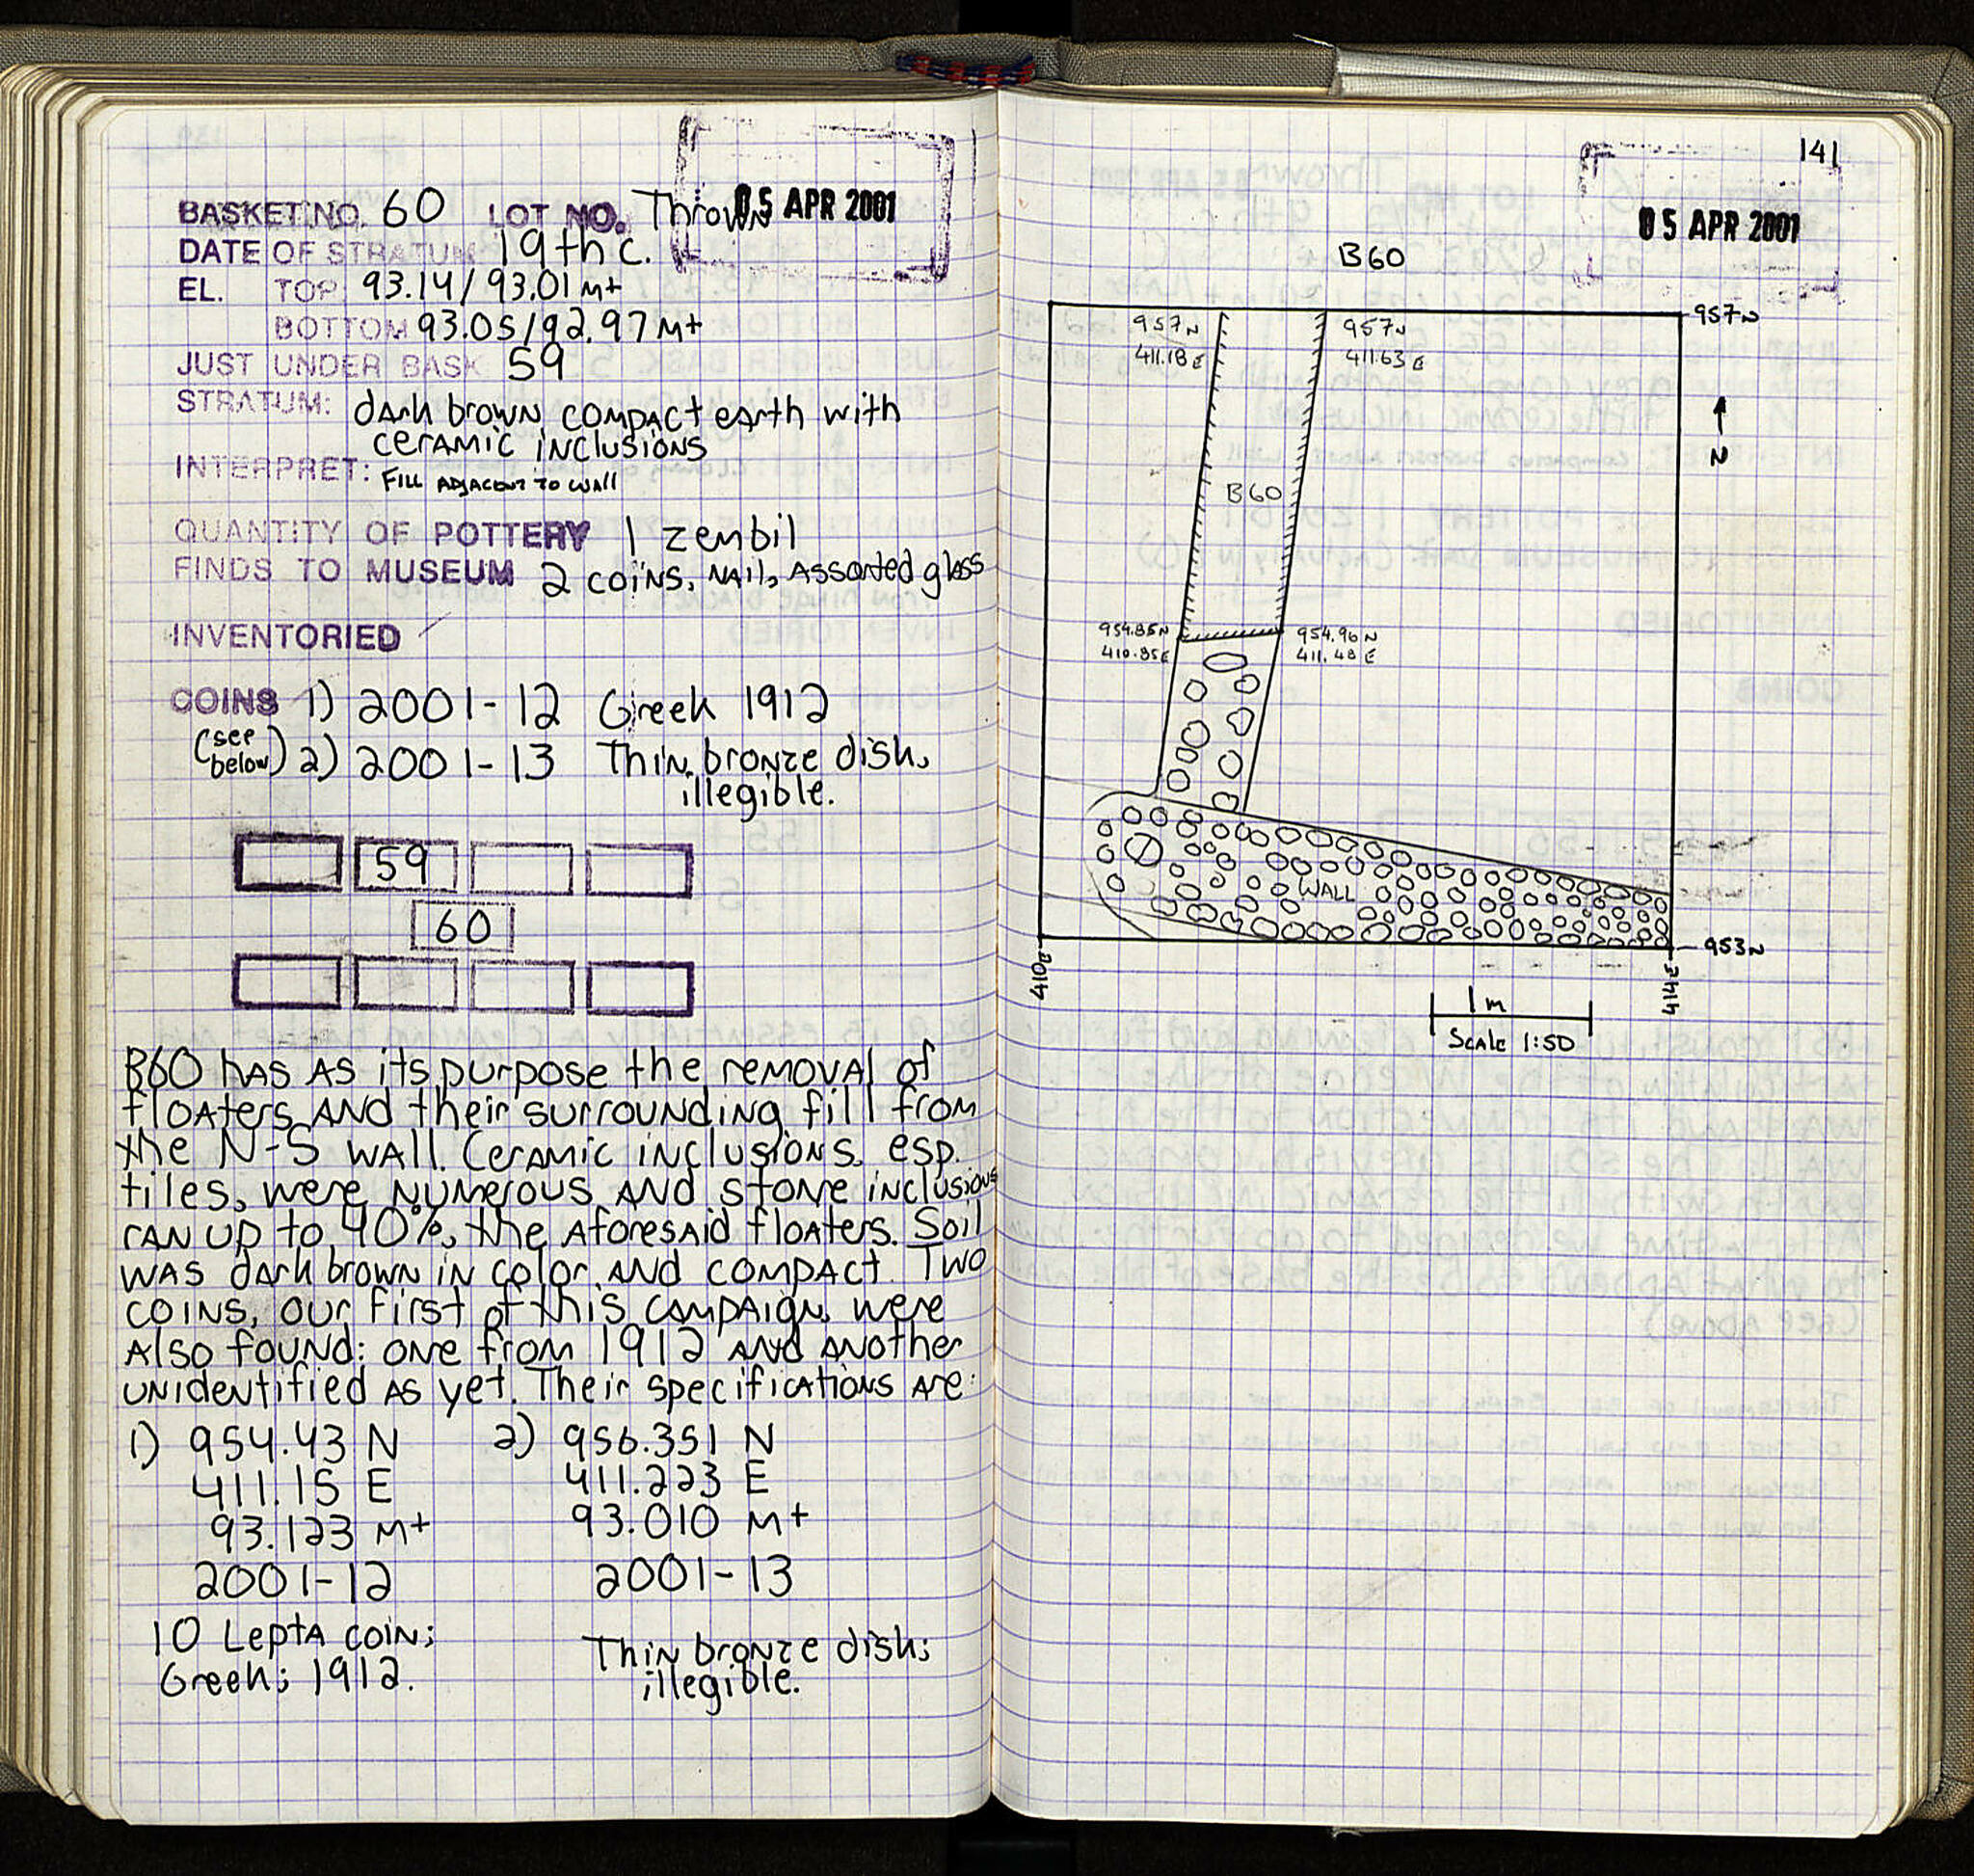 BASKET NO. 60 LOT NO. Thrown
05 APR 2001
DATE OF STRATUM 19th c.
EL. TOP 93.14/93.01 m+
BOTTOM 93.05/92.97 m+
JUST UNDER BASK. 59
STRATUM: dark brown compact earth with
ceramic inclusions
INTERPRET: Fill adjacent to wall
QUANTITY OF POTTERY 1 zembil
FINDS TO MUSEUM 2 coins, nail, assorted glass
INVENTORIED
COINS 1) 2001-12 Greek 1912
(see below) 2) 2001-13 Thin bronze disk,
illegible.
59
60
B60 has as its purpose the removal of
floaters and their surrounding fill from
the N-S wall. Ceramic inclusions, esp.
tiles, were numerous and stone inclusions
ran up to 40%, the aforesaid floaters. Soil
was dark brown in color and compact. Two
coins, our first of this campaign, were
also found: one from 1912 and another
unidentified as yet. Their specifications are:
1) 954.43 N 2) 956.351 N
411.15 E 411.223 E
93.123 m+ 93.010 m+
2001-12 2001-13
10 Lepta coin; Thin bronze disk;
Greek; 1912. illegible.
141
05 APR 2001
B60
957N
957N 957N
411.18E 411.63E
N
B60
954.85N 954.96N
410.85E 411.48E
WALL
953N
410E
414E
1m
Scale 1:50